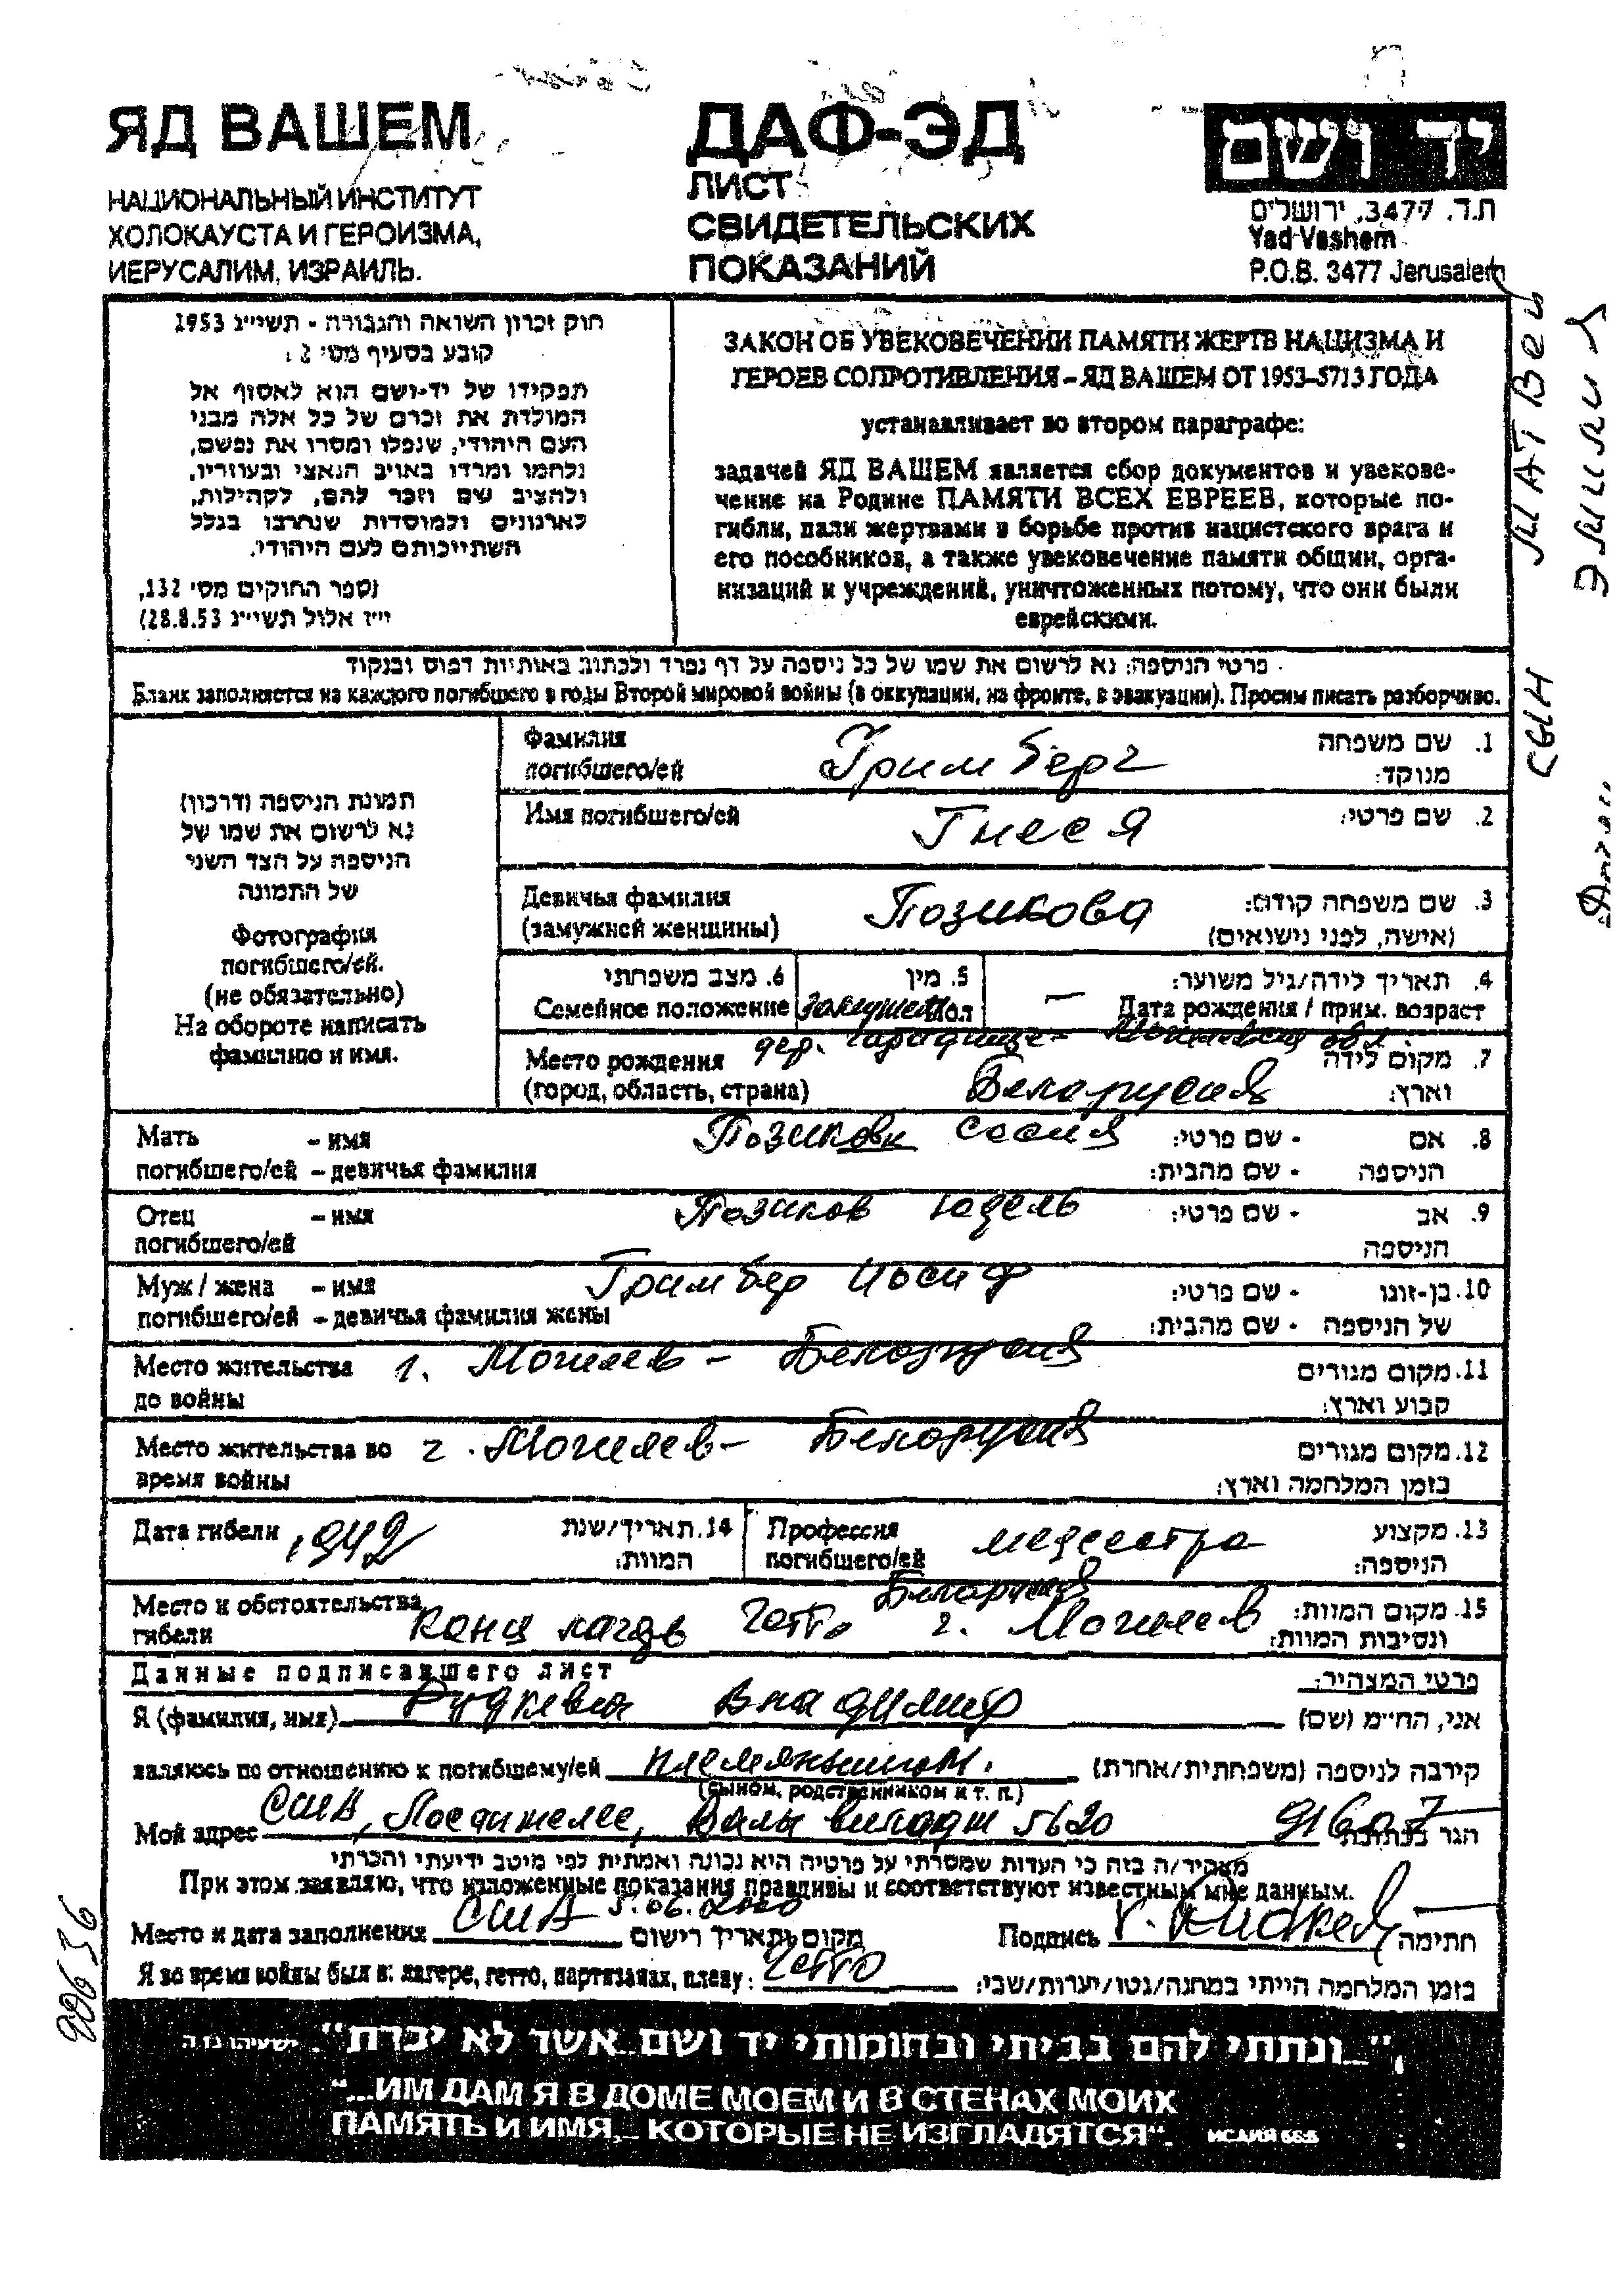 ЯД ВАШЕМ
НАЦИОНАЛЬНЫЙ ИНСТИТУТ
ХОЛОКАУСТА И ГЕРОИЗМА,
ИЕРУСАЛИМ, ИЗРАИЛЬ.
ДАФ-ЭД
ЛИСТ
СВИДЕТЕЛЬСКИХ
ПОКАЗАНИЙ
יד ושם
ת.ד. 3477, ירושלים
Yad Vashem
P.O.B. 3477 Jerusalem
חוק זכרון השואה והגבורה - תשי״ג 1953
קובע בסעיף מס׳ 2:
תפקידו של יד-ושם הוא לאסוף אל
המולדת את זכרם של כל אלה מבני
העם היהודי, שנפלו ומסרו את נפשם,
נלחמו ומרדו באויב הנאצי ובעוזריו,
ולהציב שם וזכר להם, לקהילות,
לארגונים ולמוסדות שנחרבו בגלל
השתייכותם לעם היהודי.
(ספר החוקים מס׳ 132,
י״ז אלול תשי״ג 28.8.53)
ЗАКОН ОБ УВЕКОВЕЧЕНИИ ПАМЯТИ ЖЕРТВ НАЦИЗМА И
ГЕРОЕВ СОПРОТИВЛЕНИЯ – ЯД ВАШЕМ ОТ 1953–5713 ГОДА
устанавливает во втором параграфе:
задачей ЯД ВАШЕМ является сбор документов и увекове-
чение на Родине ПАМЯТИ ВСЕХ ЕВРЕЕВ, которые по-
гибли, пали жертвами в борьбе против нацистского врага и
его пособников, а также увековечение памяти общин, орга-
низаций и учреждений, уничтоженных потому, что они были
еврейскими.
СЫН МАТВЕЙ
ЭМИЛИЯ
פרטי הניספה: נא לרשום את שמו של כל ניספה על דף נפרד ולכתוב באותיות דפוס ובנקוד
Бланк заполняется на каждого погибшего в годы Второй мировой войны (в оккупации, на фронте, в эвакуации). Просим писать разборчиво.
תמונת הניספה (דרכון)
נא לרשום את שמו של
הניספה על הצד השני
של התמונה
Фотография
погибшего/ей.
(не обязательно)
На обороте написать
фамилию и имя.
Фамилия погибшего/ей Гримберг 1. שם משפחה מנוקד:
Имя погибшего/ей Гнеся 2. שם פרטי:
Девичья фамилия (замужней женщины) Позикова 3. שם משפחה קודם: (אישה, לפני נישואים)
6. מצב משפחתי 5. מין 4. תאריך לידה/גיל משוער:
Семейное положение замужем Пол — Дата рождения / прим. возраст
Место рождения дер. Могилевская обл. 7. מקום לידה
(город, область, страна) Белоруссия וארץ:
Мать – имя Позикова София 8. אם - שם פרטי:
погибшего/ей – девичья фамилия הניספה - שם מהבית:
Отец – имя Позиков Юдель 9. אב - שם פרטי:
погибшего/ей הניספה
Муж / жена – имя Гримбер Иосиф 10. בן-זוגו - שם פרטי:
погибшего/ей – девичья фамилия жены של הניספה - שם מהבית:
Место жительства г. Могилев – Белоруссия 11. מקום מגורים
до войны קבוע וארץ:
Место жительства во г. Могилев – Белоруссия 12. מקום מגורים
время войны בזמן המלחמה וארץ:
Дата гибели 1942 14. תאריך/שנת המוות:
Профессия погибшего/ей медсестра 13. מקצוע הניספה:
Белоруссия
Место и обстоятельства гибели Конц лагерь Гетто г. Могилев 15. מקום המוות: ונסיבות המוות:
Данные подписавшего лист פרטי המצהיר:
Я (фамилия, имя) Рудкевич Владимир אני, הח״מ (שם)
являюсь по отношению к погибшему/ей племянником. קירבה לניספה (משפחתית/אחרת)
(сыном, родственником и т. п.)
Мой адрес США, Лосанжелес, 5620 91607 הגר בכתובת
מצהיר/ה בזה כי העדות שמסרתי על פרטיה היא נכונה ואמתית לפי מיטב ידיעתי והכרתי
При этом заявляю, что изложенные показания правдивы и соответствуют известным мне данным.
Место и дата заполнения США 5.06.2000 מקום ותאריך רישום Подпись חתימה
Я во время войны был в: лагере, гетто, партизанах, плену: Гетто בזמן המלחמה הייתי במחנה/גטו/יערות/שבי:
"...ונתתי להם בביתי ובחומותי יד ושם...אשר לא יכרת". ישעיהו נו ה
"...ИМ ДАМ Я В ДОМЕ МОЕМ И В СТЕНАХ МОИХ
ПАМЯТЬ И ИМЯ,... КОТОРЫЕ НЕ ИЗГЛАДЯТСЯ". ИСАИЯ 56:5